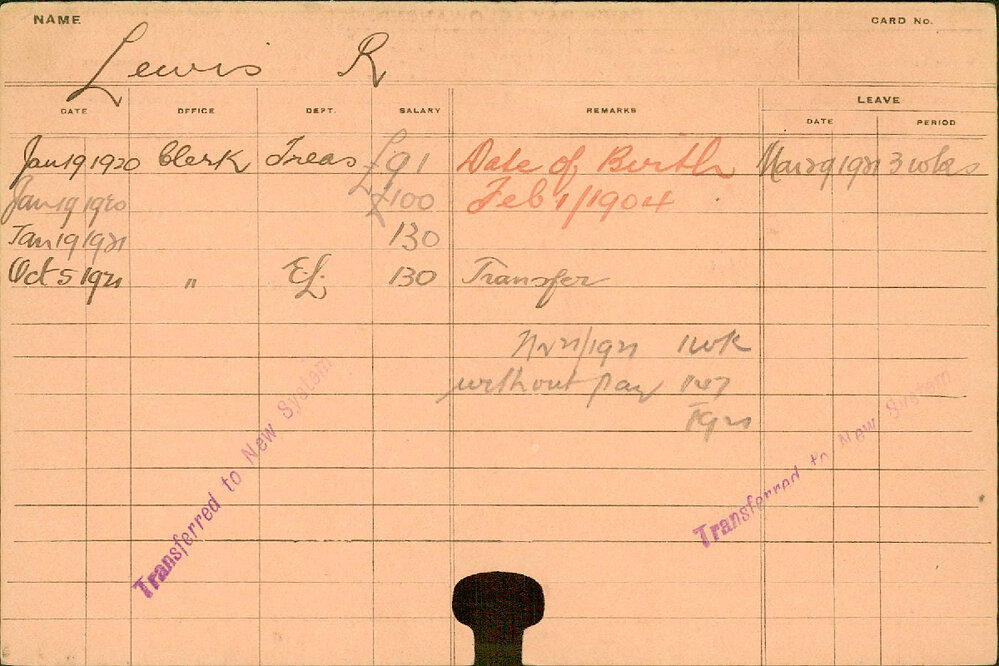 NAME
CARD No.
Lewis R
DATE OFFICE DEPT. SALARY REMARKS LEAVE
DATE PERIOD
Jan 19 1920 Clerk Treas £91 Date of Birth Mar 29 1921 3 wks
Jan 19 1920 £100 Feb 1/1904
Jan 19 1921 130
Oct 5 1921 " 130 Transfer
1921 1 wk
without pay
Transferred to New System
Transferred to New System